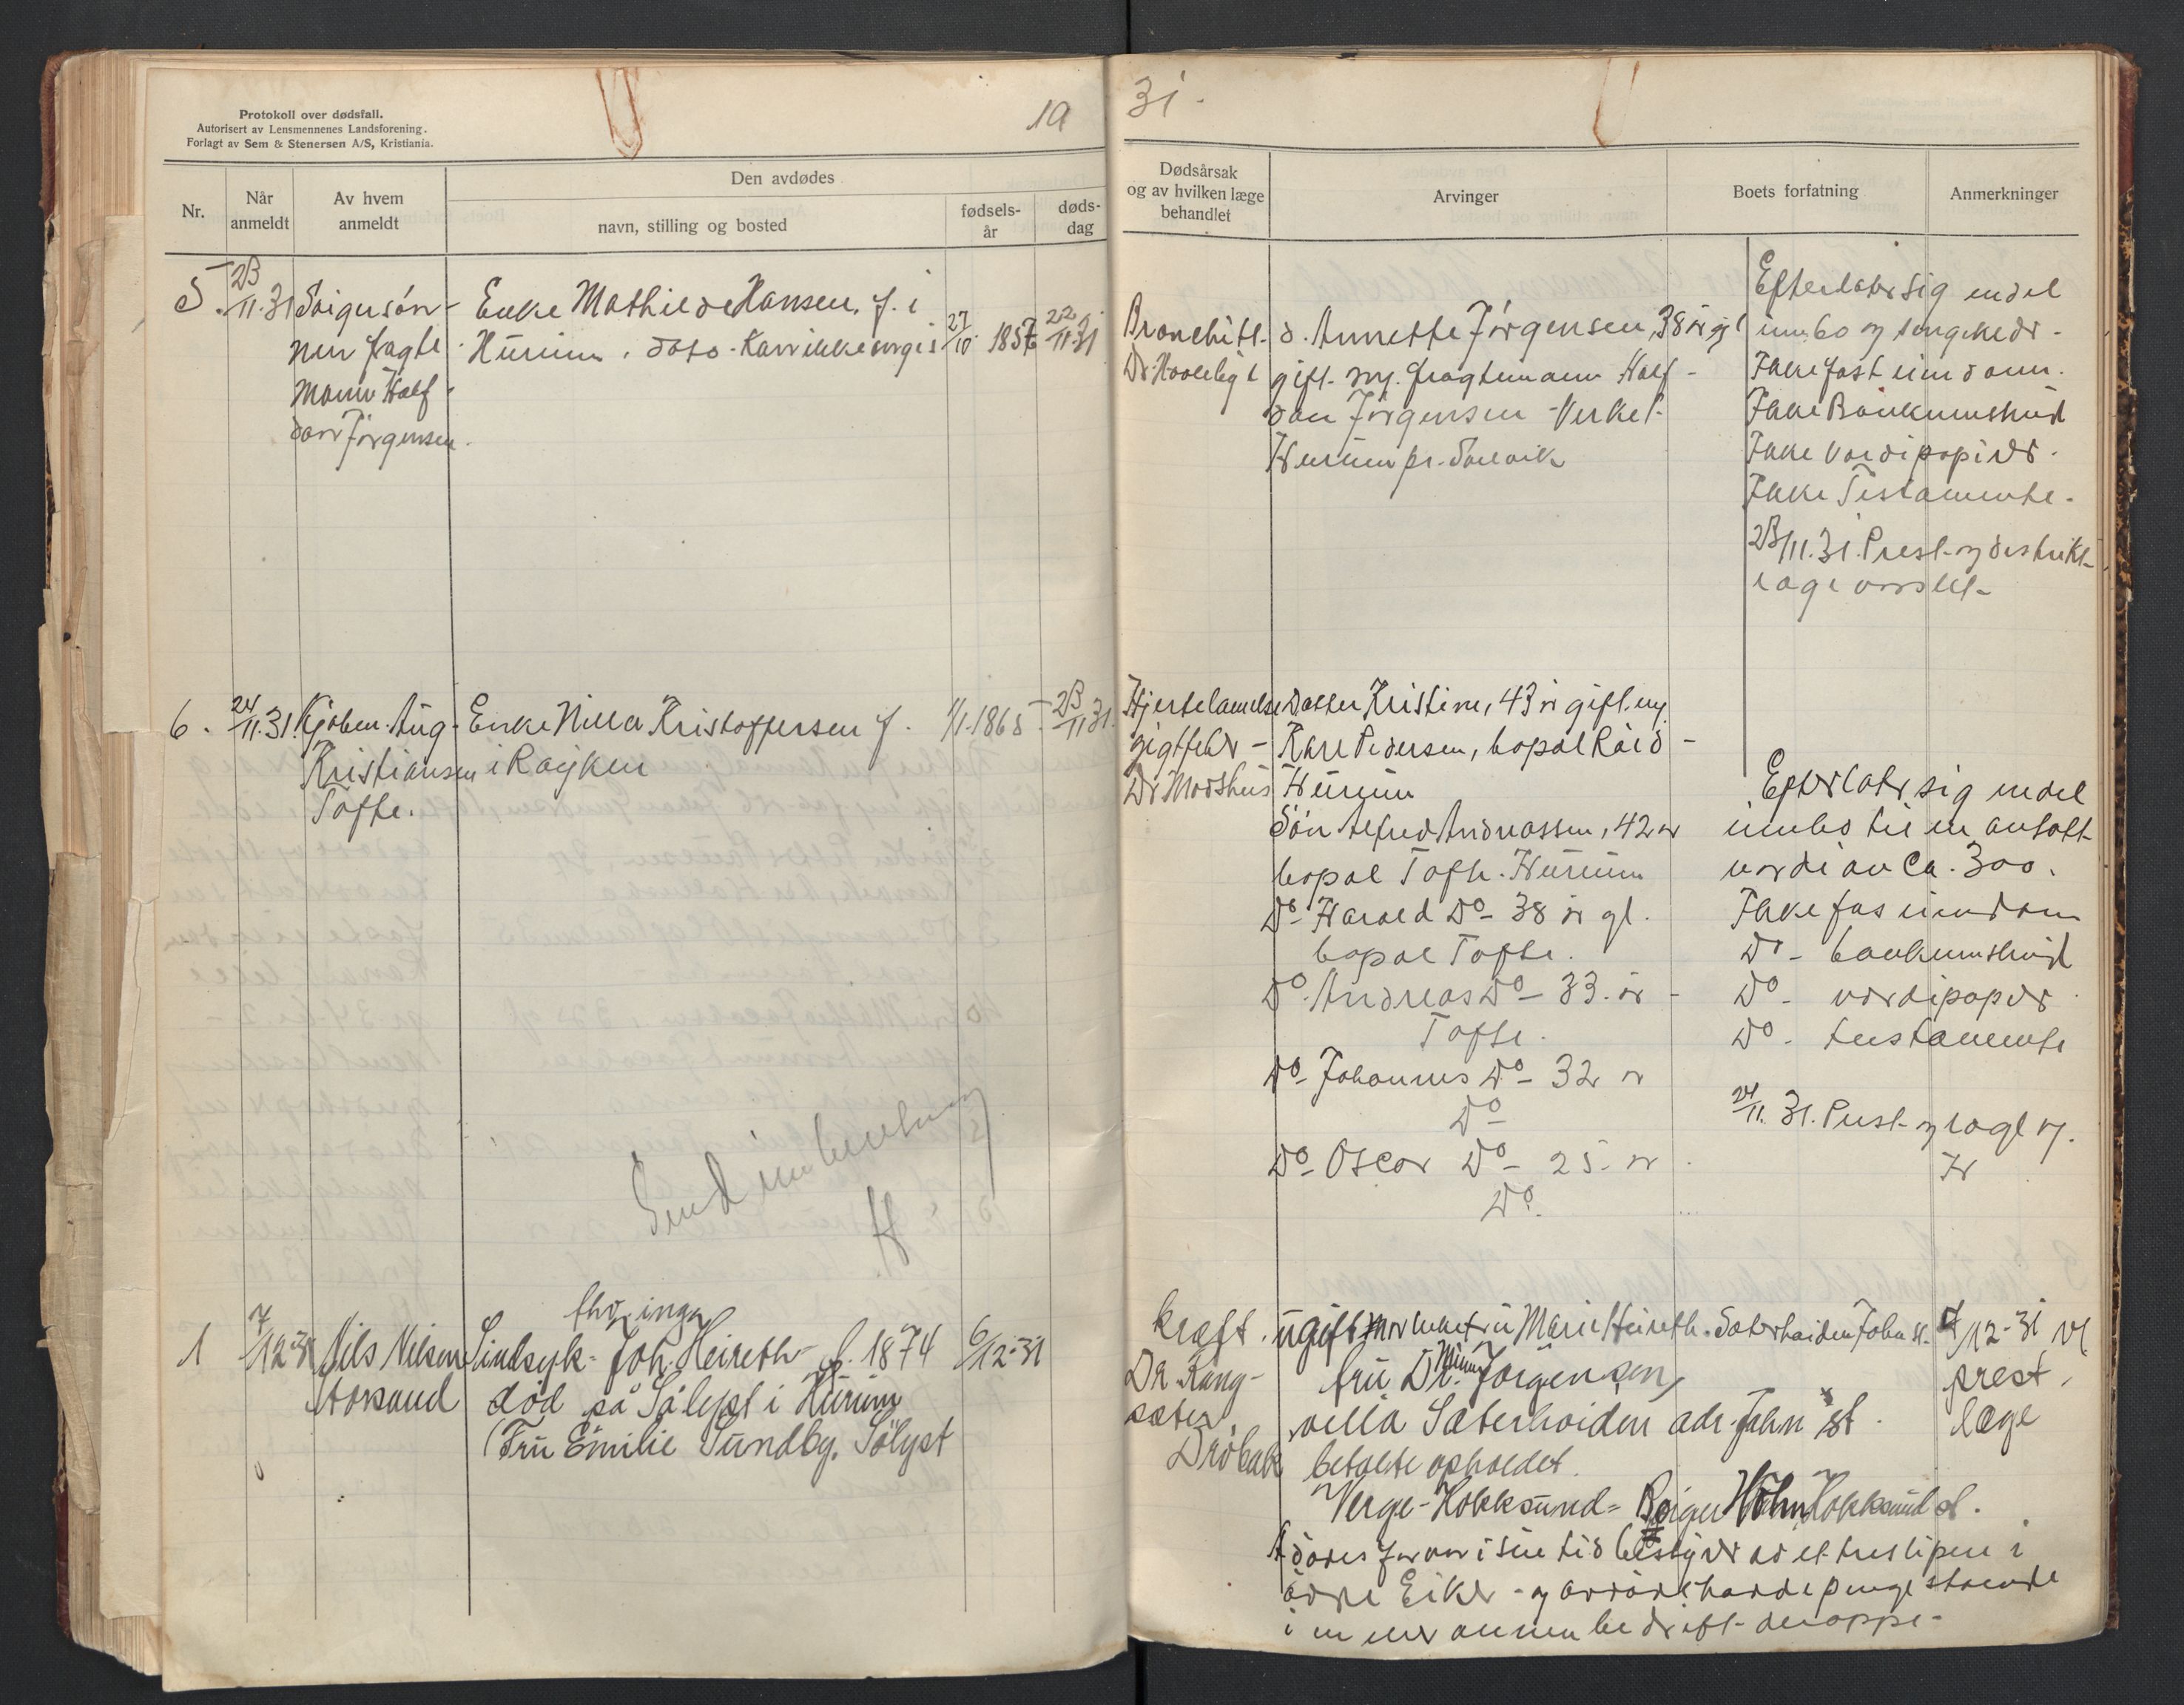 19
31
Protokoll over dødsfall.
Autorisert av Lensmennenes Landsforening.
Forlagt av Sem & Stenersen A/S, Kristiania.
Nr.
Når anmeldt
Av hvem anmeldt
Den avdødes
navn, stilling og bosted
fødsels-år
døds-dag
Dødsårsak og av hvilken læge behandlet
Arvinger
Boets forfatning
Anmerkninger
5.
23/11.31
Svigersön-
nen fragte
mann Half-
dan Jörgensen.
Enke Mathilde Hansen, f. i
Hurum. dato - kan ikke opgis
27/10 1857
22/11 31
Bronchitt-
d. Annette Jörgensen, 38 år gl
gift m. fragtemann Half-
dan Jörgensen - Verket
Hurum pr. Selvik
Efterlater sig endel
innbo og sengeklær.
Ikke fast eiendom.
Ikke Bankinnskud
Ikke Verdipapirer.
Ikke Testamente.
23/11.31. Prest- og distrikts-
læge varslet.
6.
24/11.31.
Kjöbm. Aug.
Kristiansen
Tofte.
Enke Nilla Kristoffersen f.
i Røyken
1/1.1865
23/11 31.
Hjertelamelse
gigtfeber -
Dr Modshus
Datter Kristine, 43 år gift m.
Kare Pedersen, bopæl
Hurum
Sön Alfred Andreassen, 42 år
bopæl Tofte. Hurum
Do Harald Do - 38 år gl.
bopæl Tofte.
Do. Andreas Do - 33. år -
Tofte.
Do - Johannes Do - 32 år
Do
Do - Oscar Do - 25 - år.
Do.
Efterlater sig endel
innbo til en antatt
verdi av Ca. 300.
Ikke fas eiendom
Do - bankinnskud
Do - verdipaper
Do - testamente
24/11. 31. Prest- og læge v.
Send innberetning
H
1
7/12-31
Nils Nilsen
Storsand
Sindsyk - Joh. Heireth - f. 1874
död på Sölyst i Hurum
(Fru Emilie Sundby, Sölyst
6/12-31
kræft.
Dr. Rang-
sæter,
Dröbak
ugift Mor enkefru Marie Heireth. Sæterheiden John st.
fru Dr. Minna Jörgensen,
villa Sæterheiden adr. John st.
betalte opholdet.
Verge - Hokksund - Birger Höhn, Hokksund st.
Avdödes far var i sin tid bestyrer av et tresliperi i
ödre Eiker - og avdöde hadde penge stående
i en eller annen bedrift deroppe -
7/12-31 vl.
prest,
læge